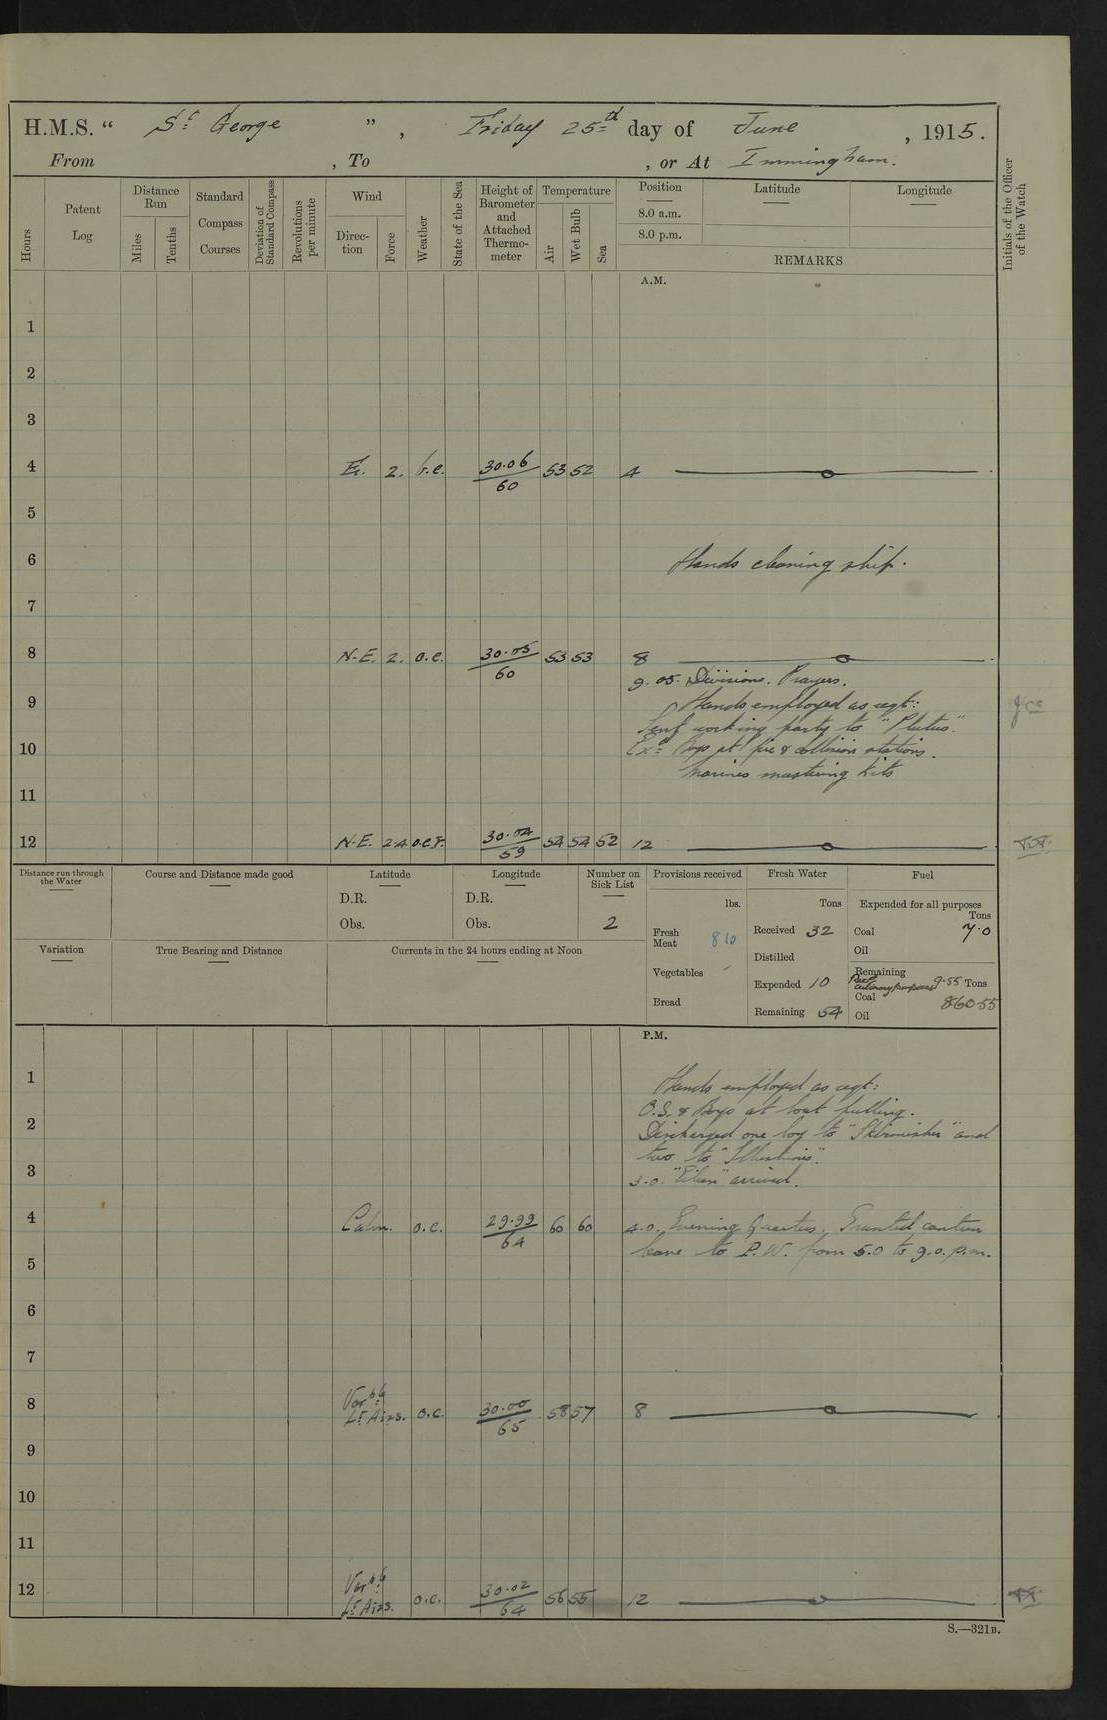 H.M.S. " St George ", Friday 25th day of June, 1915.
From , To , or At Immingham.
Hours
Patent Log
Distance Run
Miles
Tenths
Standard Compass Courses
Deviation of Standard Compass
Revolutions per minute
Wind
Direc-tion
Force
Weather
State of the Sea
Height of Barometer and Attached Thermo-meter
Temperature
Air
Wet Bulb
Sea
Position
8.0 a.m.
8.0 p.m.
Latitude
Longitude
REMARKS
Initials of the Officer of the Watch
A.M.
1
2
3
4 E. 2. b.c. 30.06/60 53 52 4
5
6 Hands cleaning ship.
7
8 N.E. 2. o.c. 30.05/60 53 53 8
9.05. Divisions. Prayers.
9 Hands employed as reqt:
Sent working party to "Plutus".
10 Exd Boys at fire & collision stations.
Marines mustering kits
11
12 N.E. 2.4 o.c.r. 30.04/59 54 54 52 12
Distance run through the Water
Course and Distance made good
Latitude
D.R.
Obs.
Longitude
D.R.
Obs.
Number on Sick List
2
Provisions received
lbs.
Fresh Meat 810
Vegetables
Bread
Fresh Water
Tons
Received 32
Distilled
Expended 10
Remaining 54
Fuel
Expended for all purposes
Tons
Coal 7.0
Oil
Remaining
9.55 Tons
Coal 860.55
Oil
Variation
True Bearing and Distance
Currents in the 24 hours ending at Noon
P.M.
1 Hands employed as reqt:
2 O.S. & Boys at boat pulling.
Discharged one boy to "Skirmisher" and
3 two to "Illustrious".
3.0. "Eileen" arrived.
4 Calm. o.c. 29.99/64 60 60 4.0. Evening Quarters. Granted canteen
leave to P.W. from 5.0 to 9.0. p.m.
5
6
7
8 Varble Lt Airs. o.c. 30.00/65 58 57 8
9
10
11
12 Varble Lt Airs. o.c. 30.02/64 56 55 12
S.—321B.